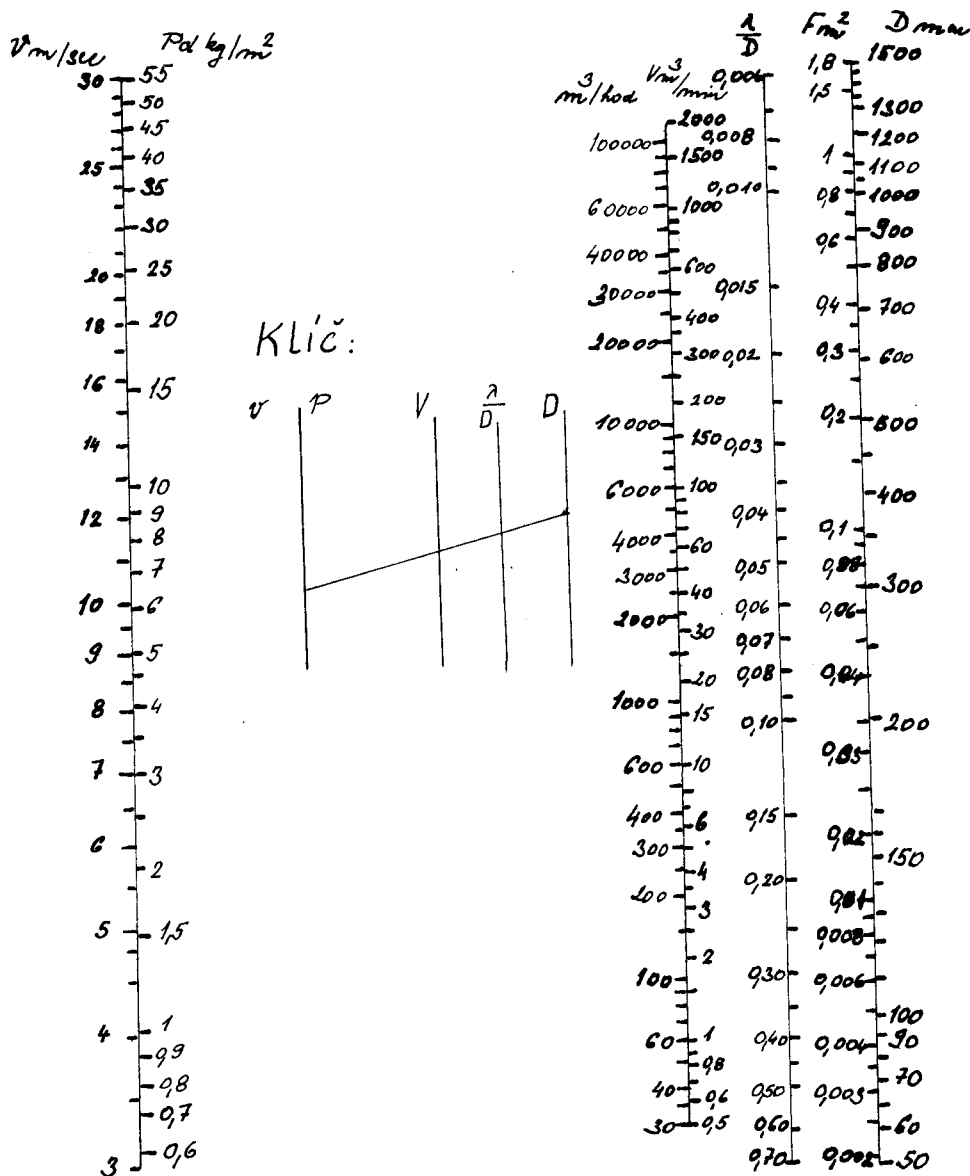 v m/sec Pd kg/m² m³/hod V m³/min λ/D F m² D mm
30 55
50
45
25 40
35
30
20 25
18 20
16 15
14
10
12 9
8
7
10 6
9 5
8 4
7 3
6
2
5 1,5
4 1
0,9
0,8
0,7
3 0,6
Klíč:
v P V λ/D D
100000
60000
40000
30000
20000
10000
6000
4000
3000
2000
1000
600
400
300
200
100
60
40
30
2000
1500
1000
600
400
300
200
150
100
60
40
30
20
15
10
6
4
3
2
1
0,8
0,6
0,5
0,006
0,008
0,010
0,015
0,02
0,03
0,04
0,05
0,06
0,07
0,08
0,10
0,15
0,20
0,30
0,40
0,50
0,60
0,70
1,8
1,5
1
0,8
0,6
0,4
0,3
0,2
0,1
0,08
0,06
0,04
0,02
0,01
0,008
0,006
0,004
0,003
0,002
1500
1300
1200
1100
1000
900
800
700
600
500
400
300
200
150
100
90
70
60
50